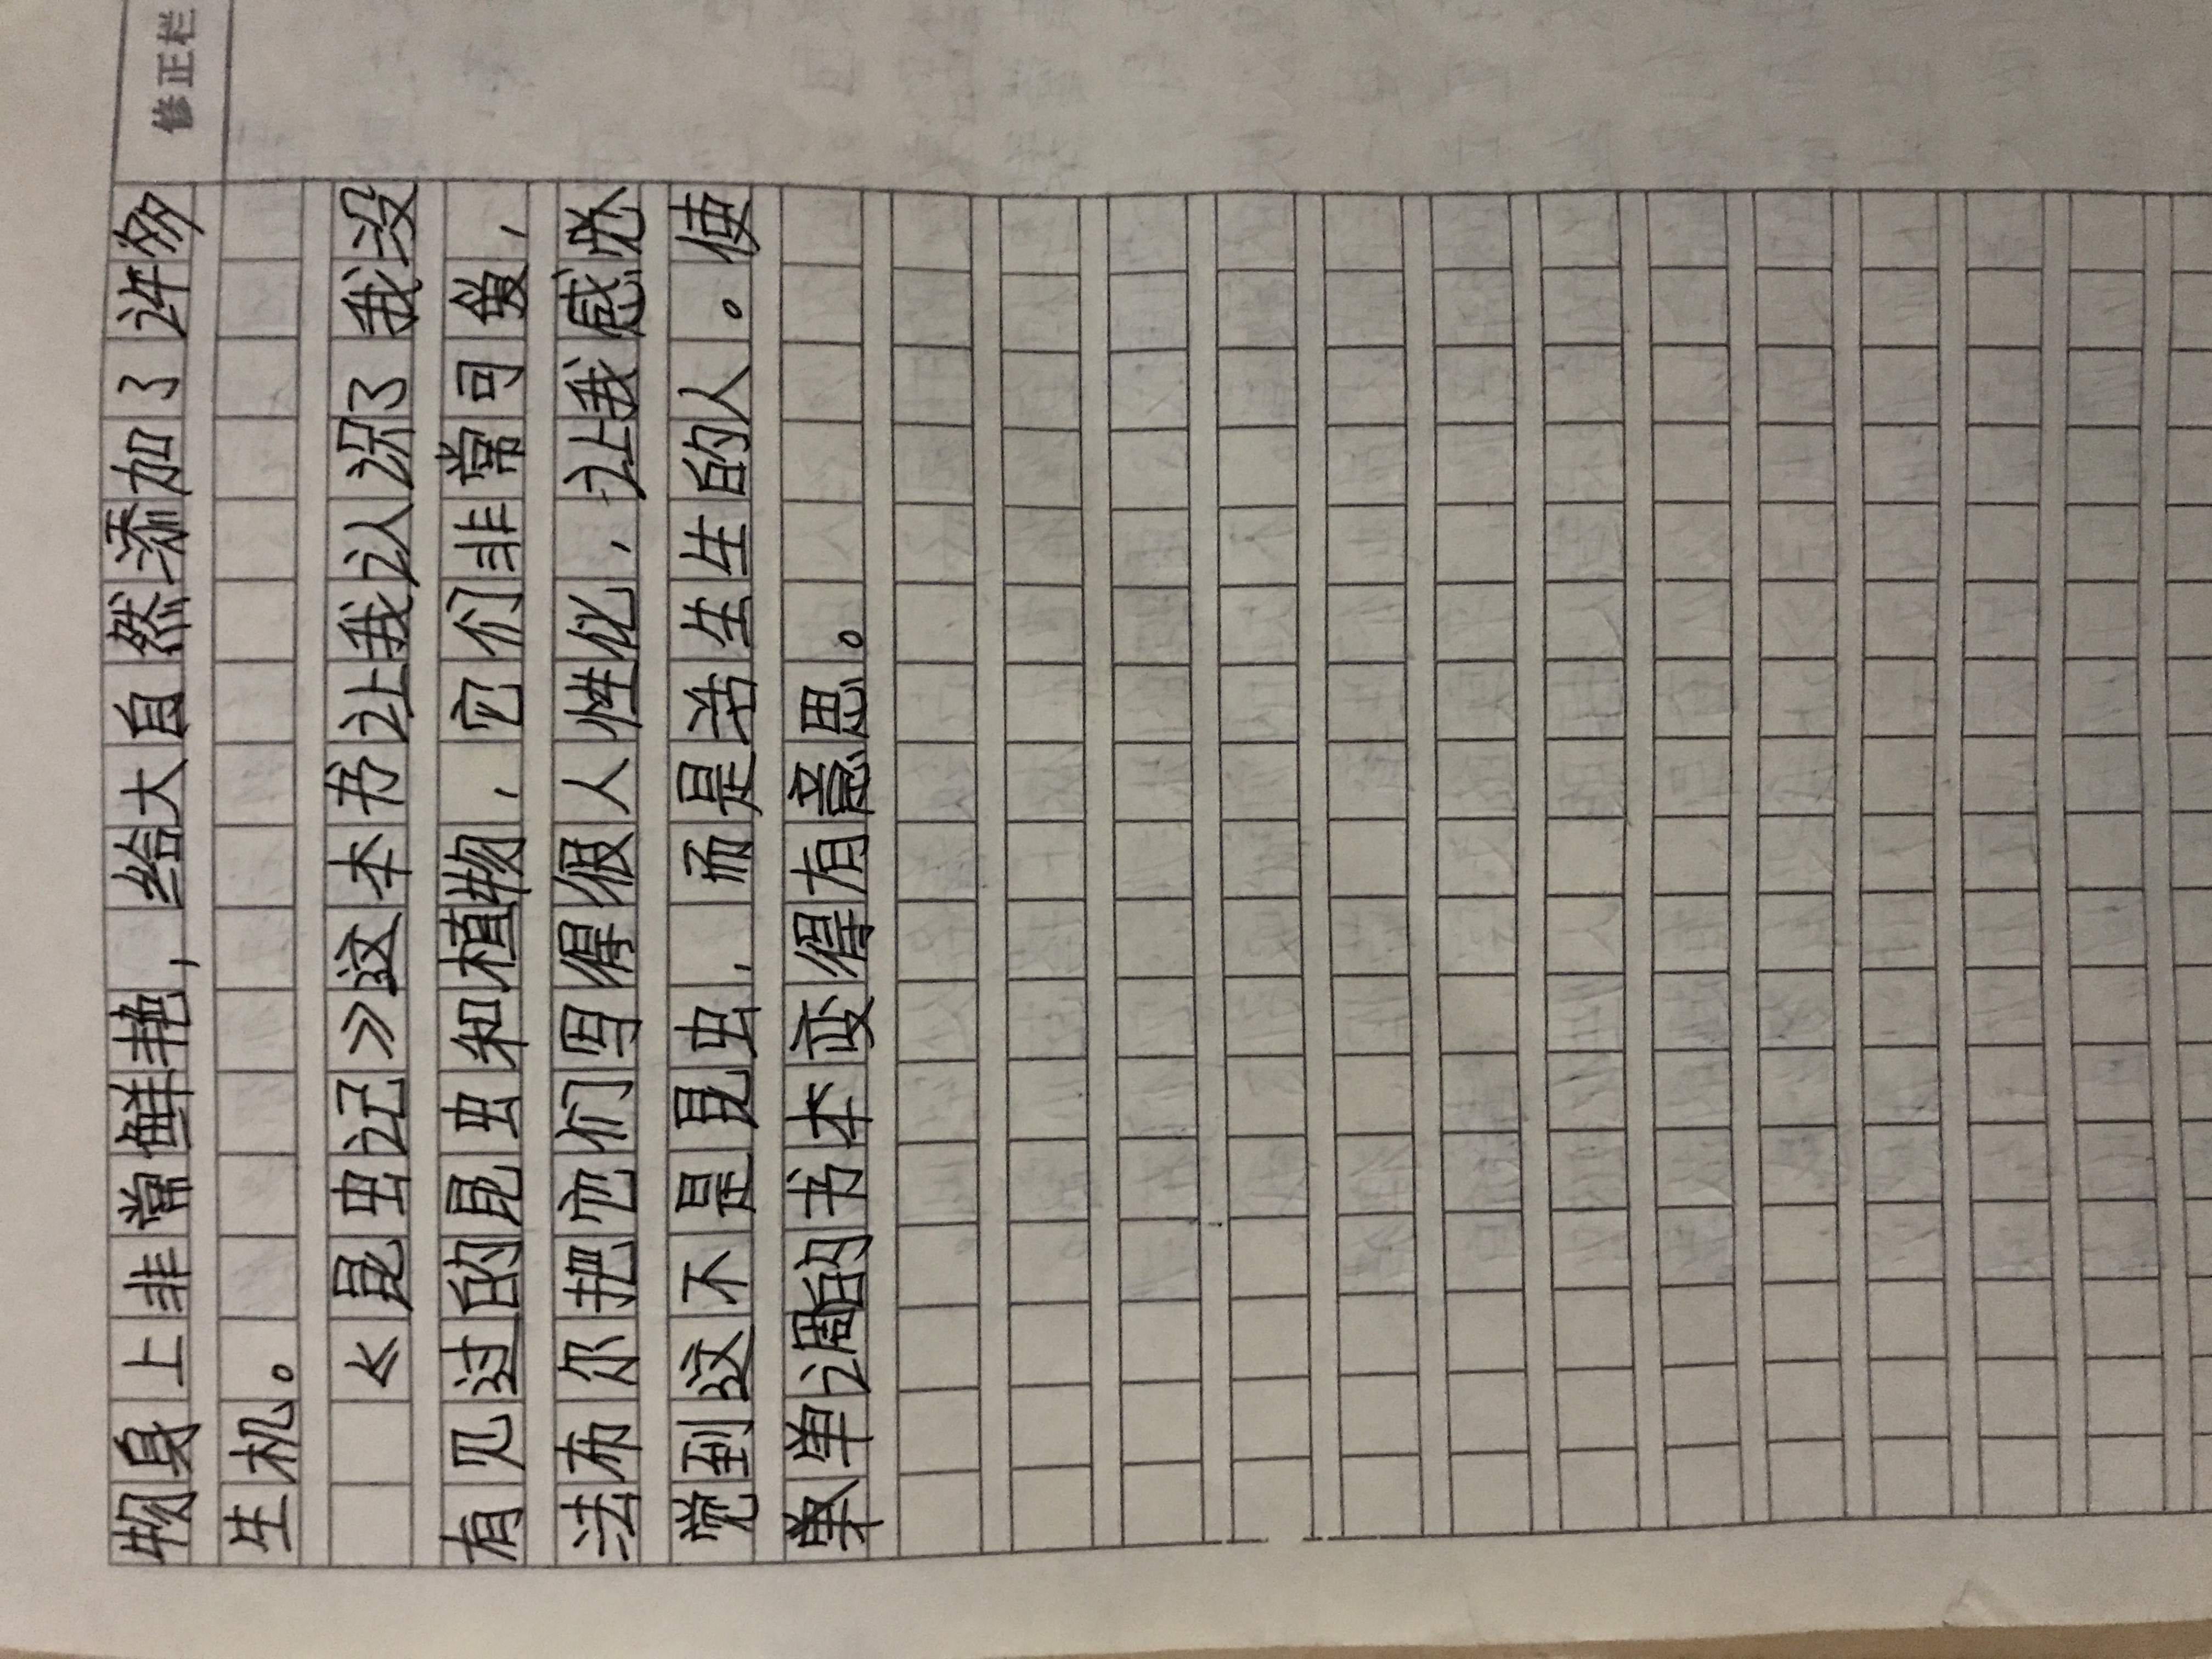 修正栏
物身上非常鲜艳，给大自然添加了许多
生机。
《昆虫记》这本书让我认识了我没
有见过的昆虫和植物，它们非常可爱，
法布尔把它们写得很人性化，让我感觉
觉到这不是昆虫，而是活生生的人。使
单调的书本变得有意思。